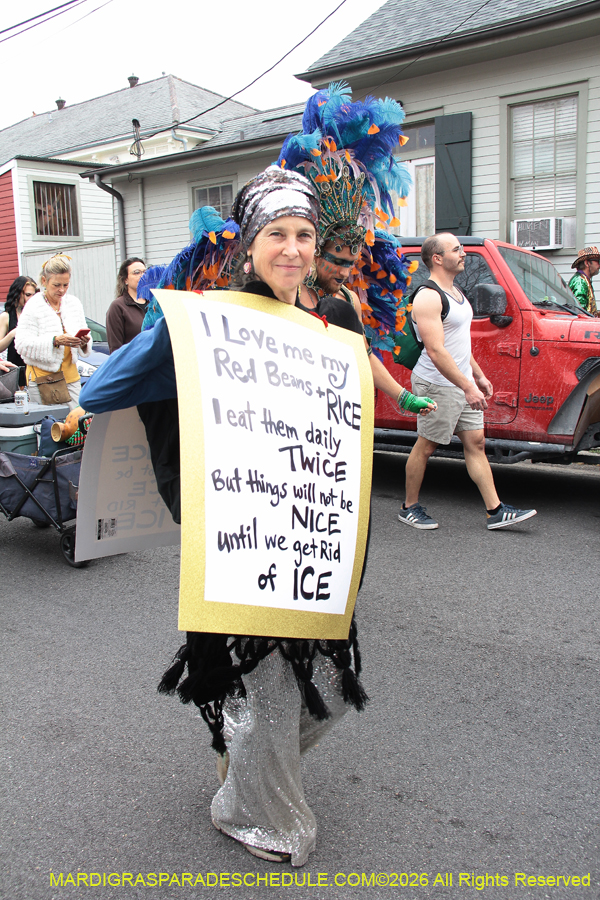 I Love me my
Red Beans + RICE
I eat them daily
TWICE
But things will not be
NICE
until we get Rid
of ICE
ICE
be
Rid
ICE
Jeep
MARDIGRASPARADESCHEDULE.COM©2026 All Rights Reserved